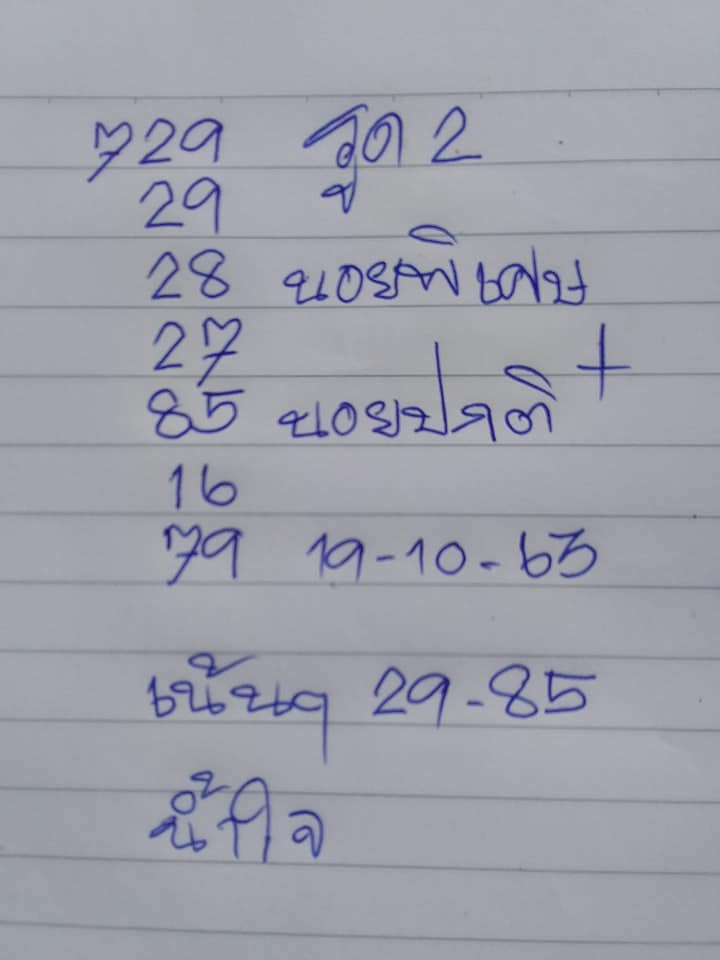 729 รูด 2
29
28 นอยพิเศษ
27
85 นอยปกติ +
16
79 19-10-63
เน้นๆ 29-85
น้ำใจ